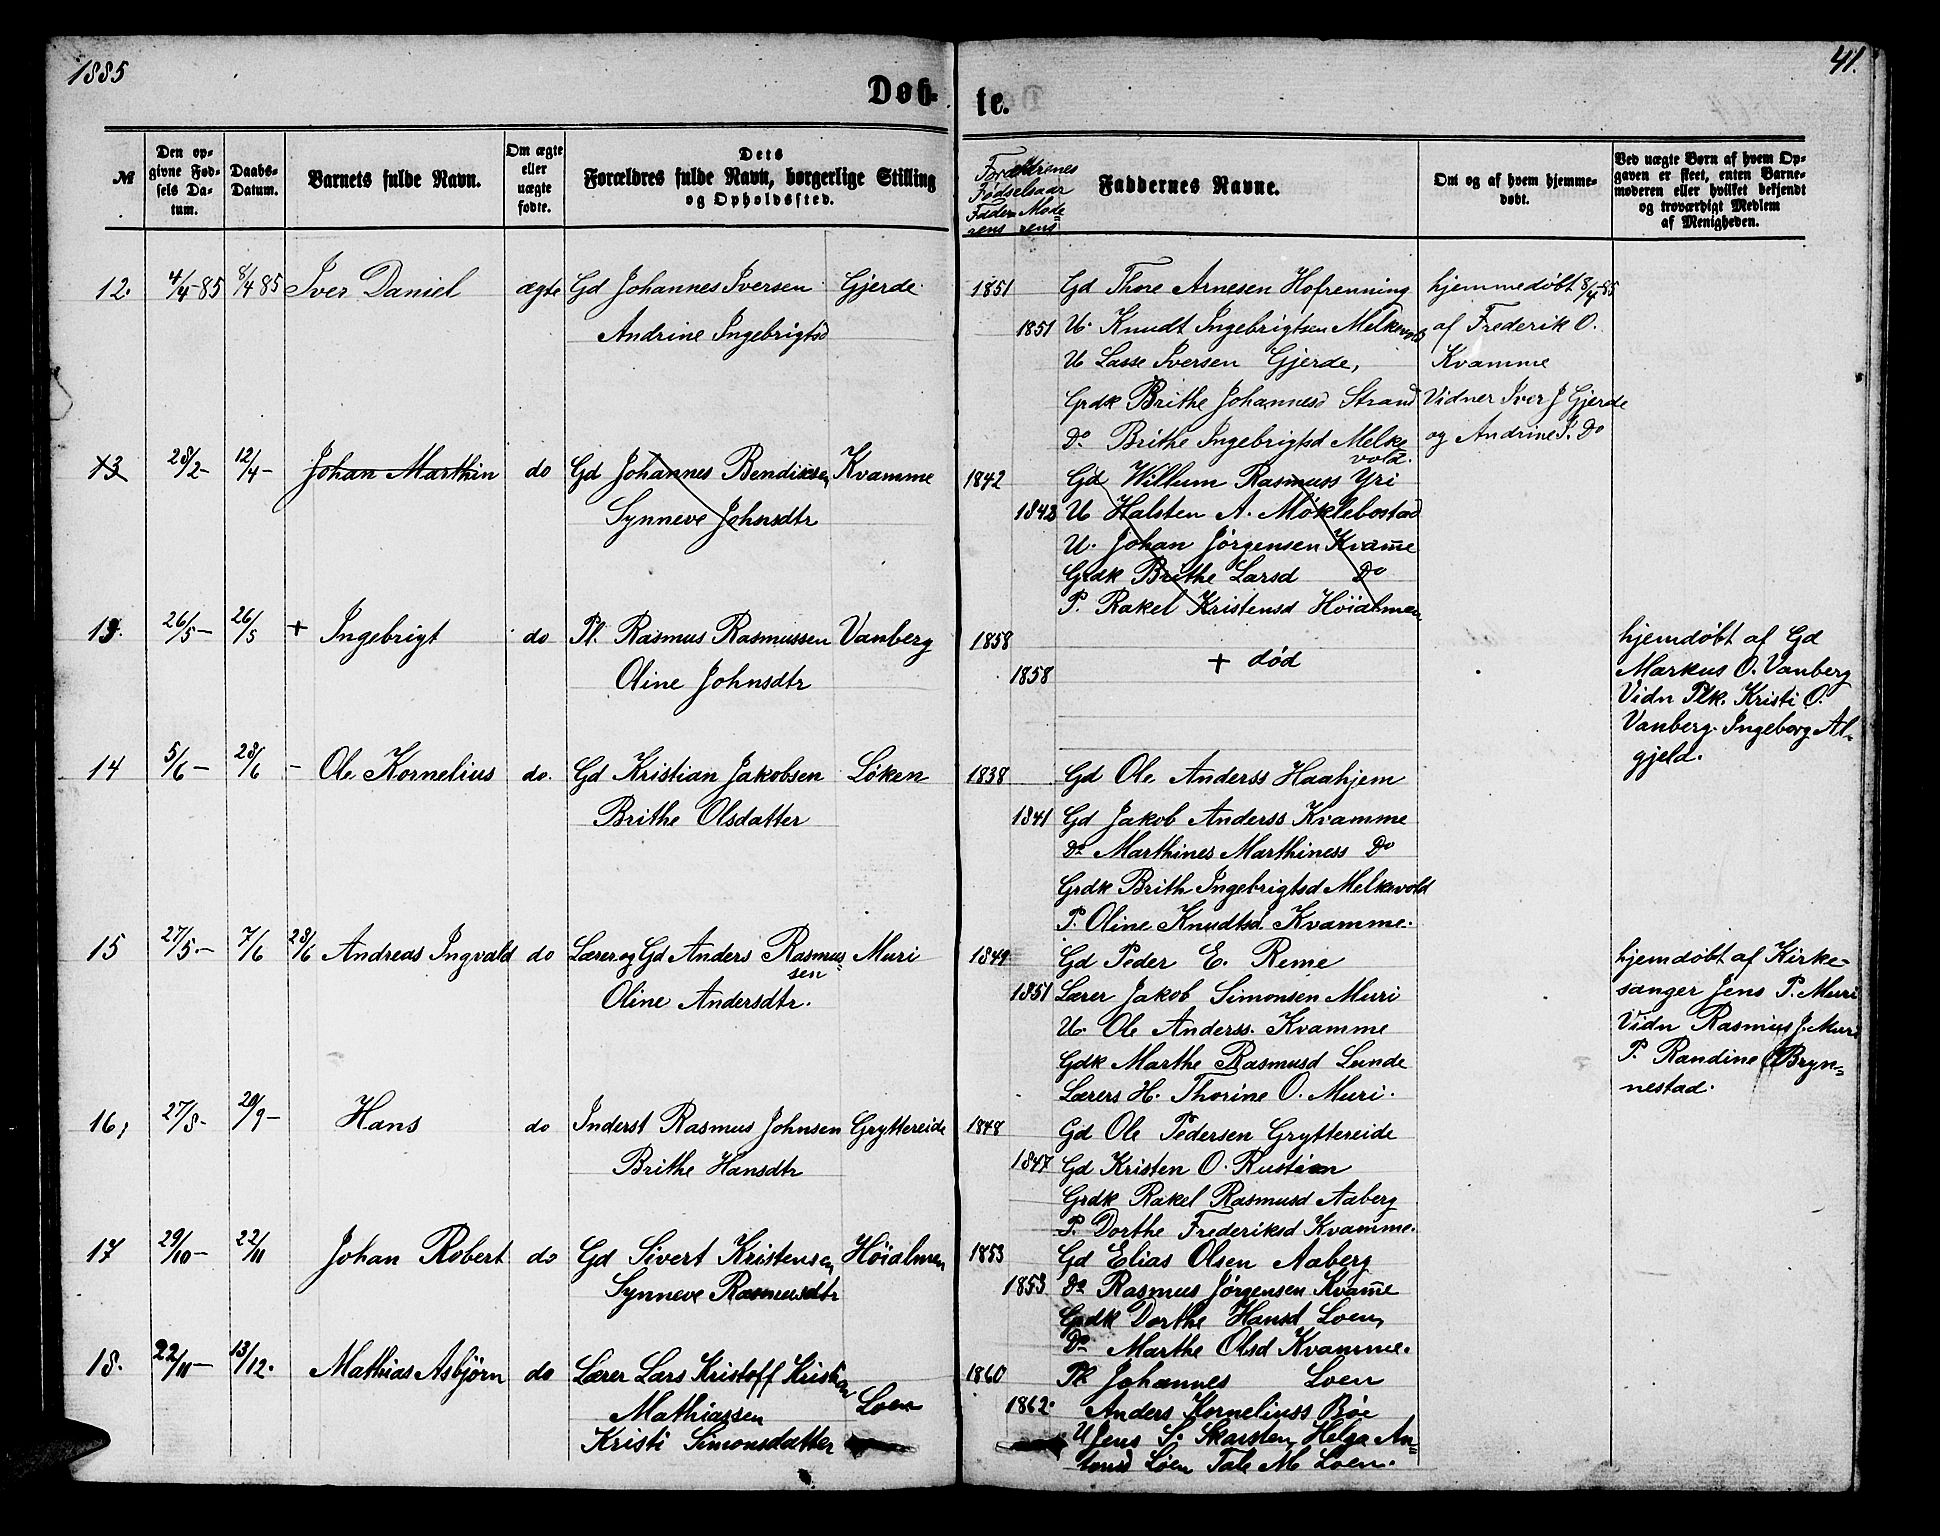 1885
41.
Døb-
te.
№
Den op-
givne Fød-
sels Da-
tum.
Daabs-
Datum.
Barnets fulde Navn.
Om ægte
eller
uægte
fødte.
Dets
Forældres fulde Navn, borgerlige Stilling
og Opholdssted.
Forældrenes
Fødselsaar
Faderens Moderens
Faddernes Navne.
Om og af hvem hjemme-
døbt.
Ved uægte Børn af hvem Op-
gaven er skeet, enten Barne-
moderen eller hvilket bekjendt
og troværdigt Medlem
af Menigheden.
12. 4/4-85 8/4 85 Iver Daniel ægte Gd Johannes Iversen Gjerde
Andrine Ingebrigtsd
1851 Gd Thore Arnesen Hofrenning
1851 U. Knudt Ingebrigtsen Melkevold
U Lasse Iversen Gjerde,
Grdk Brithe Johannesd Strand
Do. Brithe Ingebrigtsd Melke
vold.
hjemmedøbt 8/4-85
af Frederik O.
Kvamme
Vidner Iver J Gjerde
og Andrine I. Do
13 28/2- 12/4- Johan Marthin do Gd Johannes Bendiksen Kvamme
Synneve Johnsdtr
1842 Gd Willum Rasmuss Yri
1842 U Halsten A. Møklebostad
U. Johan Jørgensen Kvam̄e
Grdk Brithe Larsd Do
P. Rakel Kristensd Høialmen
13. 26/5- 26/5 + Ingebrigt do Pl. Rasmus Rasmussen Vanberg
Oline Johnsdtr
1858
1858
+ død
hjemdøbt af Gd
Markus O. Vanberg
Vidn Plk. Kristi O.
Vanberg. Ingeborg Al-
gjeld.
14 5/6- 28/6 - Ole Kornelius do. Gd Kristian Jakobsen Løken
Brithe Olsdatter
1838 Gd Ole Anderss Haahjem
1841 Gd Jakob Anderss Kvamme
Do Marthines Marthiness Do
Grdk Brith Ingebrigtsd Melkevold
P. Oline Knudtsd Kvamme.
15 27/5.- 7/6 28/6 Andreas Ingvald do Lærer og Gd Anders Rasmus- Muri
sen
Oline Andersdtr.
1849 Gd Peder E. Reme
1851 Lærer Jakob Simonsen Muri
U. Ole Anderss. Kvamme
Gdk Marthe Rasmusd Lunde
Lærers H. Thorine O. Muri.
hjemdøbt af Kirke-
sanger Jens P. Muri
Vidn Rasmus J. Muri
P. Randine O Bryn-
nestad.
16, 27/8. 20/9- Hans do Inderst Rasmus Johnsen Gryttereide
Brithe Hansdtr
1848 Gd Ole Pedersen Gryttereide
1847 Gd Kristen O. Rustøen
Grdk Rakel Rasmusd Aaberg
P. Dorthe Frederiksd Kvamme.
17 29/10- 22/11 Johan Robert do Gd Sivert Kristensen Høialmen
Synneve Rasmusdtr
1853 Gd Elias Olsen Aaberg
1853 Do Rasmus Jørgensen Kvam̄e
Grdk Dorthe Hansd Loen,
Do Marthe Olsd Kvamme.
18. 22/11- 13/12. Mathias Asbjørn do Lærer Lars Kristoff Kristian
Mathiassen Loen
Kristi Simonsdatter
1860 Pk Johannes Loen
1862. Anders Korneliuss Bøe
U Jens S. Skarsten, Helga An-
tonsd Loen Tale M Loen.